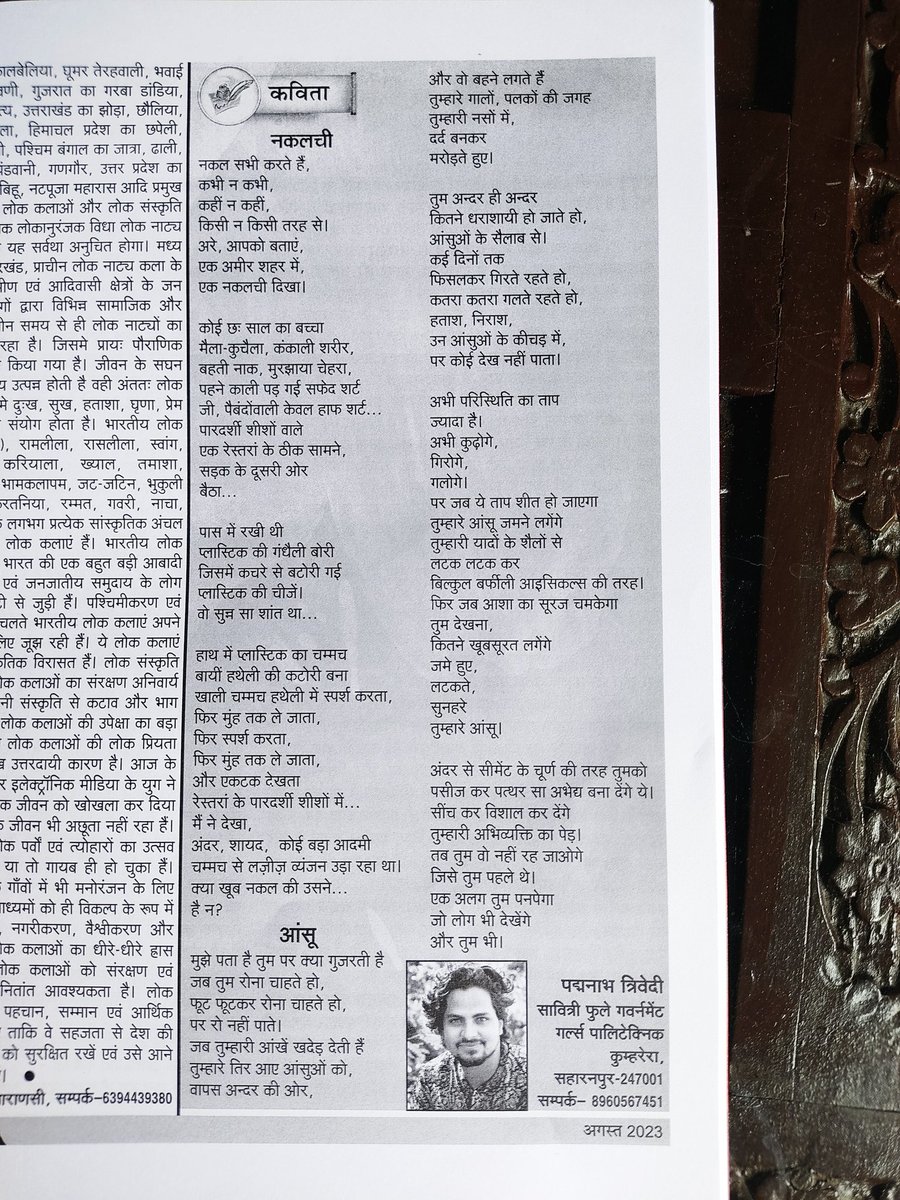 कालबेलिया, घूमर तेरहवाली, भवाई
गुजरात का गरबा डांडिया,
उत्तराखंड का झोड़ा, छौलिया,
हिमाचल प्रदेश का छपेली,
पश्चिम बंगाल का जात्रा, ढाली,
पंडवानी, गणगौर, उत्तर प्रदेश का
बिहू, नटपूजा महारास आदि प्रमुख
लोक कलाओं और लोक संस्कृति
लोकानुरंजक विधा लोक नाट्य
यह सर्वथा अनुचित होगा। मध्य
प्राचीन लोक नाट्य कला के
एवं आदिवासी क्षेत्रों के जन
द्वारा विभिन्न सामाजिक और
समय से ही लोक नाट्यों का
रहा है। जिसमे प्रायः पौराणिक
किया गया है। जीवन के सघन
उत्पन्न होती है वही अंततः लोक
दुःख, सुख, हताशा, घृणा, प्रेम
संयोग होता है। भारतीय लोक
रामलीला, रासलीला, स्वांग,
करियाला, ख्याल, तमाशा,
भामकलापम, जट-जटिन, भुकुली
रम्मत, गवरी, नाचा,
लगभग प्रत्येक सांस्कृतिक अंचल
लोक कलाएं हैं। भारतीय लोक
भारत की एक बहुत बड़ी आबादी
एवं जनजातीय समुदाय के लोग
से जुड़ी हैं। पश्चिमीकरण एवं
चलते भारतीय लोक कलाएं अपने
जूझ रही हैं। ये लोक कलाएं
विरासत हैं। लोक संस्कृति
लोक कलाओं का संरक्षण अनिवार्य
संस्कृति से कटाव और भाग
लोक कलाओं की उपेक्षा का बड़ा
लोक कलाओं की लोक प्रियता
उत्तरदायी कारण है। आज के
इलेक्ट्रॉनिक मीडिया के युग ने
जीवन को खोखला कर दिया
जीवन भी अछूता नहीं रहा हैं।
पर्वों एवं त्योहारों का उत्सव
या तो गायब ही हो चुका हैं।
गाँवों में भी मनोरंजन के लिए
को ही विकल्प के रूप में
नगरीकरण, वैश्वीकरण और
लोक कलाओं का धीरे-धीरे ह्रास
लोक कलाओं को संरक्षण एवं
नितांत आवश्यकता है। लोक
पहचान, सम्मान एवं आर्थिक
ताकि वे सहजता से देश की
को सुरक्षित रखें एवं उसे आने
सम्पर्क–6394439380
कविता
नकलची
नकल सभी करते हैं,
कभी न कभी,
कहीं न कहीं,
किसी न किसी तरह से।
अरे, आपको बताएं,
एक अमीर शहर में,
एक नकलची दिखा।
कोई छः साल का बच्चा
मैला-कुचैला, कंकाली शरीर,
बहती नाक, मुरझाया चेहरा,
पहने काली पड़ गई सफेद शर्ट
जी, पैबंदोंवाली केवल हाफ शर्ट...
पारदर्शी शीशों वाले
एक रेस्तरां के ठीक सामने,
सड़क के दूसरी ओर
बैठा...
पास में रखी थी
प्लास्टिक की गंधैली बोरी
जिसमें कचरे से बटोरी गई
प्लास्टिक की चीजें।
वो सुन्न सा शांत था...
हाथ में प्लास्टिक का चम्मच
बायीं हथेली की कटोरी बना
खाली चम्मच हथेली में स्पर्श करता,
फिर मुंह तक ले जाता,
फिर स्पर्श करता,
फिर मुंह तक ले जाता,
और एकटक देखता
रेस्तरां के पारदर्शी शीशों में...
मैं ने देखा,
अंदर, शायद, कोई बड़ा आदमी
चम्मच से लज़ीज़ व्यंजन उड़ा रहा था।
क्या खूब नकल की उसने...
है न?
आंसू
मुझे पता है तुम पर क्या गुजरती है
जब तुम रोना चाहते हो,
फूट फूटकर रोना चाहते हो,
पर रो नहीं पाते।
जब तुम्हारी आंखें खदेड़ देती हैं
तुम्हारे तिर आए आंसुओं को,
वापस अन्दर की ओर,
और वो बहने लगते हैं
तुम्हारे गालों, पलकों की जगह
तुम्हारी नसों में,
दर्द बनकर
मरोड़ते हुए।
तुम अन्दर ही अन्दर
कितने धराशायी हो जाते हो,
आंसुओं के सैलाब से।
कई दिनों तक
फिसलकर गिरते रहते हो,
कतरा कतरा गलते रहते हो,
हताश, निराश,
उन आंसुओं के कीचड़ में,
पर कोई देख नहीं पाता।
अभी परिस्थिति का ताप
ज्यादा है।
अभी कुढ़ोगे,
गिरोगे,
गलोगे।
पर जब ये ताप शीत हो जाएगा
तुम्हारे आंसू जमने लगेंगे
तुम्हारी यादों के शैलों से
लटक लटक कर
बिल्कुल बर्फीली आइसिकल्स की तरह।
फिर जब आशा का सूरज चमकेगा
तुम देखना,
कितने खूबसूरत लगेंगे
जमे हुए,
लटकते,
सुनहरे
तुम्हारे आंसू।
अंदर से सीमेंट के चूर्ण की तरह तुमको
पसीज कर पत्थर सा अभेद्य बना देंगे ये।
सींच कर विशाल कर देंगे
तुम्हारी अभिव्यक्ति का पेड़।
तब तुम वो नहीं रह जाओगे
जिसे तुम पहले थे।
एक अलग तुम पनपेगा
जो लोग भी देखेंगे
और तुम भी।
पद्मनाभ त्रिवेदी
सावित्री फुले गवर्नमेंट
गर्ल्स पालिटेक्निक
कुम्हरेरा,
सहारनपुर-247001
सम्पर्क– 8960567451
अगस्त 2023